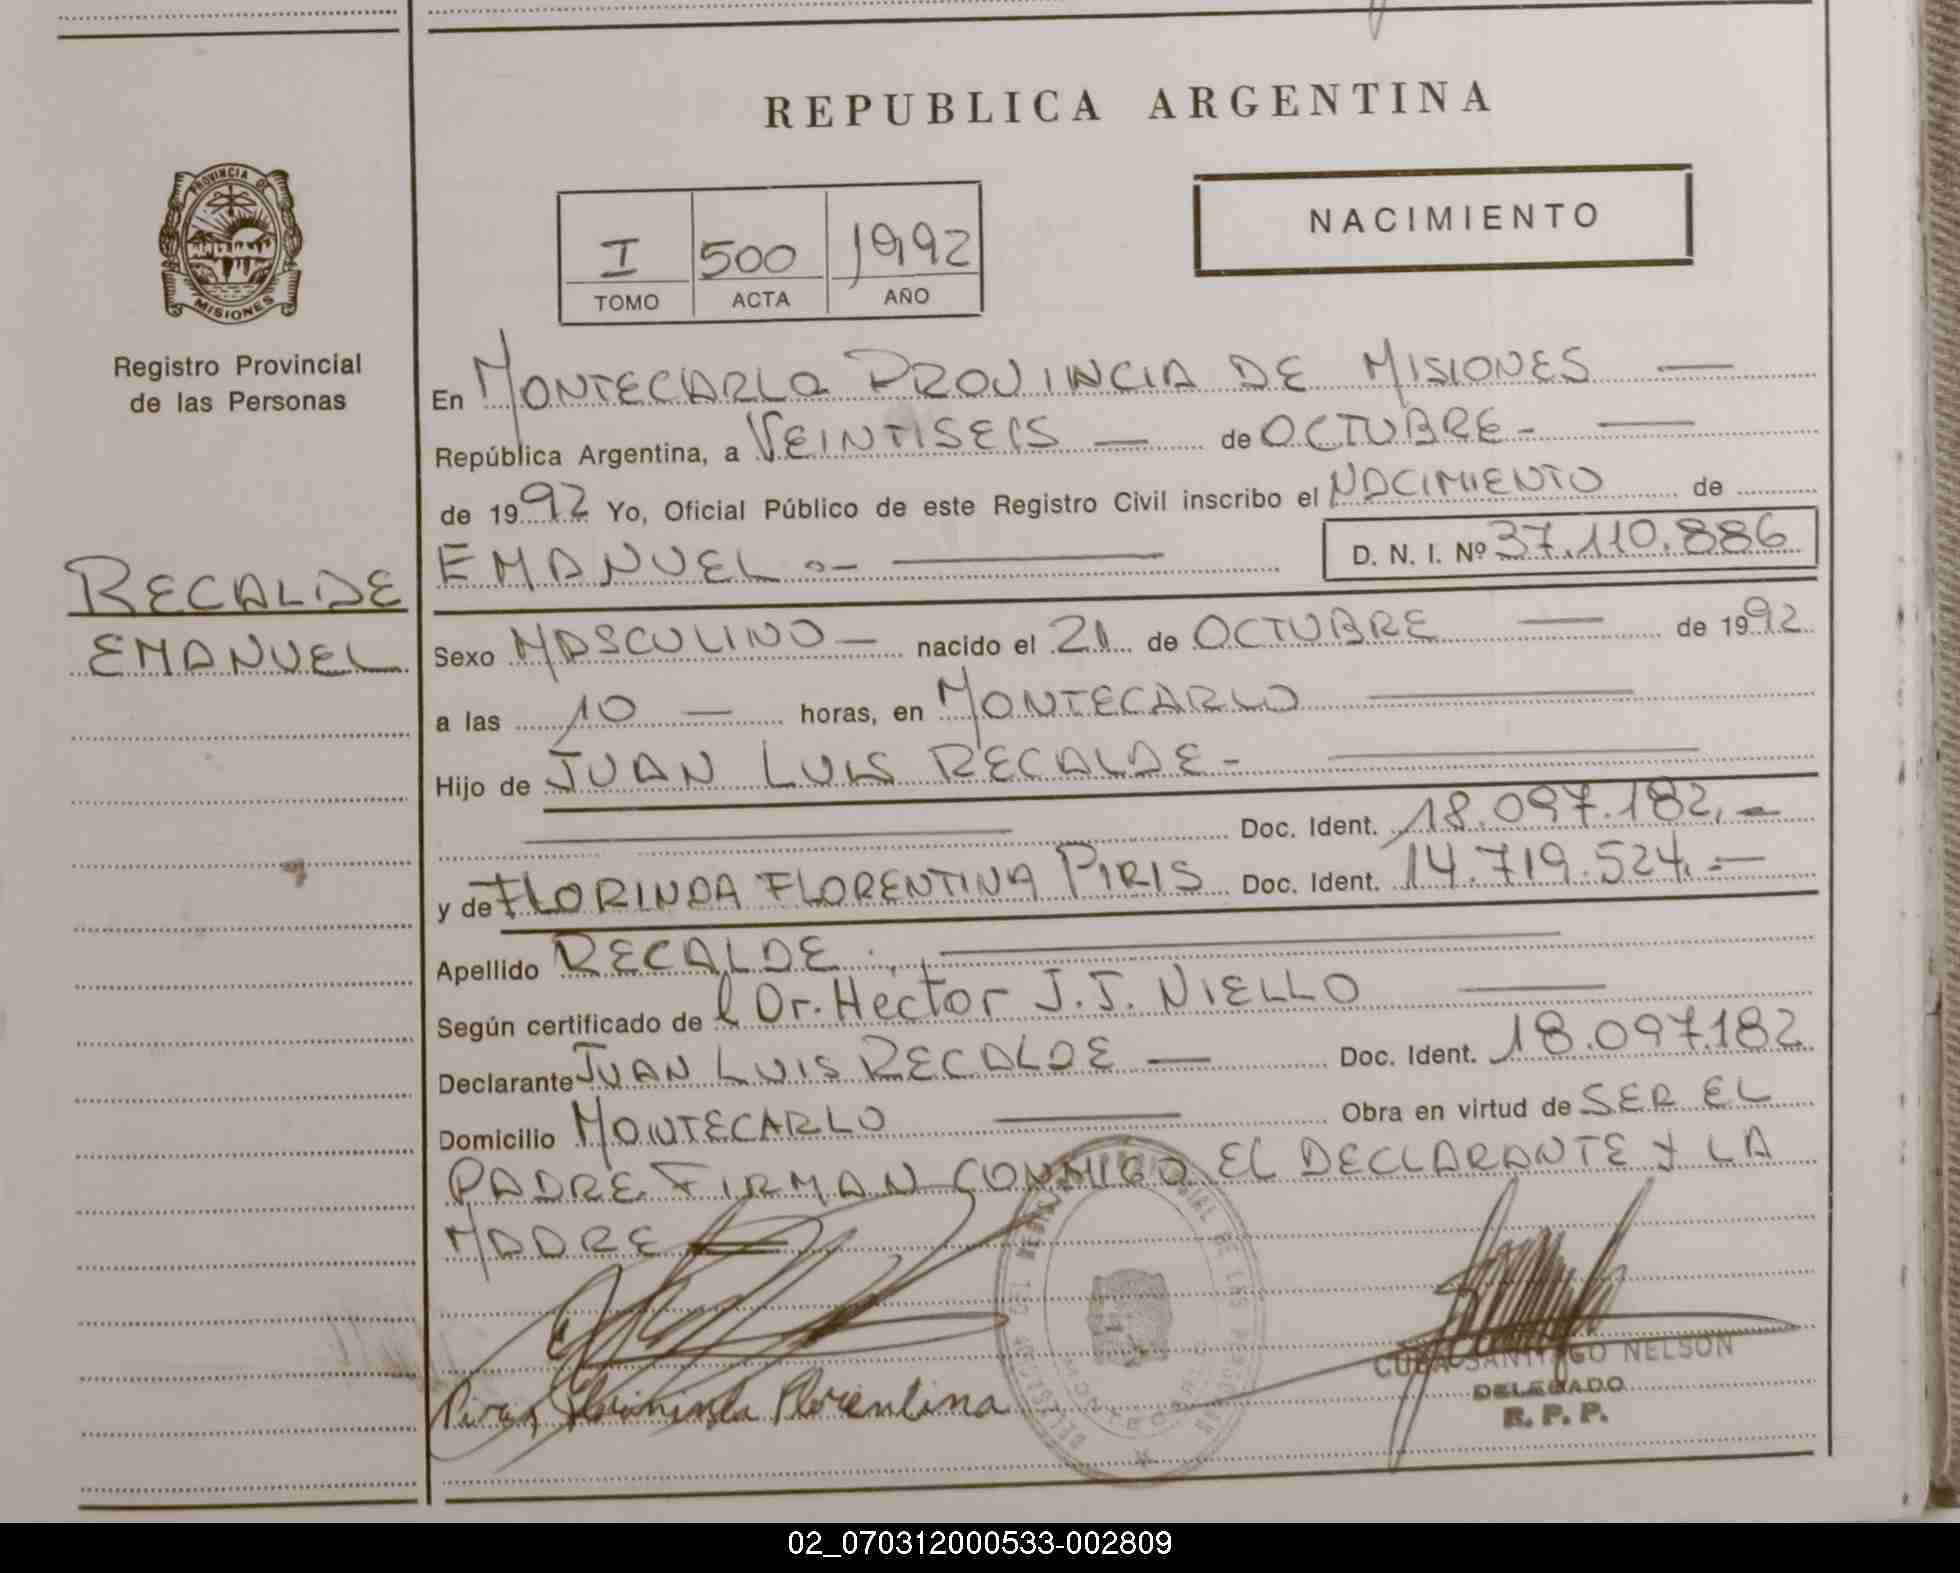 REPUBLICA ARGENTINA
PROVINCIA DE
MISIONES
Registro Provincial
de las Personas
RECALDE
EMANUEL
NACIMIENTO
I 500 1992
TOMO ACTA AÑO
En MONTECARLO PROVINCIA DE MISIONES —
República Argentina, a VEINTISEIS — de OCTUBRE - —
de 1992 Yo, Oficial Público de este Registro Civil inscribo el NACIMIENTO de
EMANUEL .- — D. N. I. Nº 37.110.886
Sexo MASCULINO — nacido el 21 de OCTUBRE — de 1992
a las 10 — horas, en MONTECARLO —
Hijo de JUAN LUIS RECALDE - —
— Doc. Ident. 18.097.182.-
y de FLORINDA FLORENTINA PIRIS Doc. Ident. 14.719.524.-
Apellido RECALDE . —
Según certificado de l Dr. Hector J.J. NIELLO —
Declarante JUAN LUIS RECALDE — Doc. Ident. 18.097.182
Domicilio MONTECARLO — Obra en virtud de SER EL
PADRE. FIRMAN CONMIGO EL DECLARANTE Y LA
MADRE —
Florentina
SANTIAGO NELSON
DELEGADO
R. P. P.
02_070312000533-002809